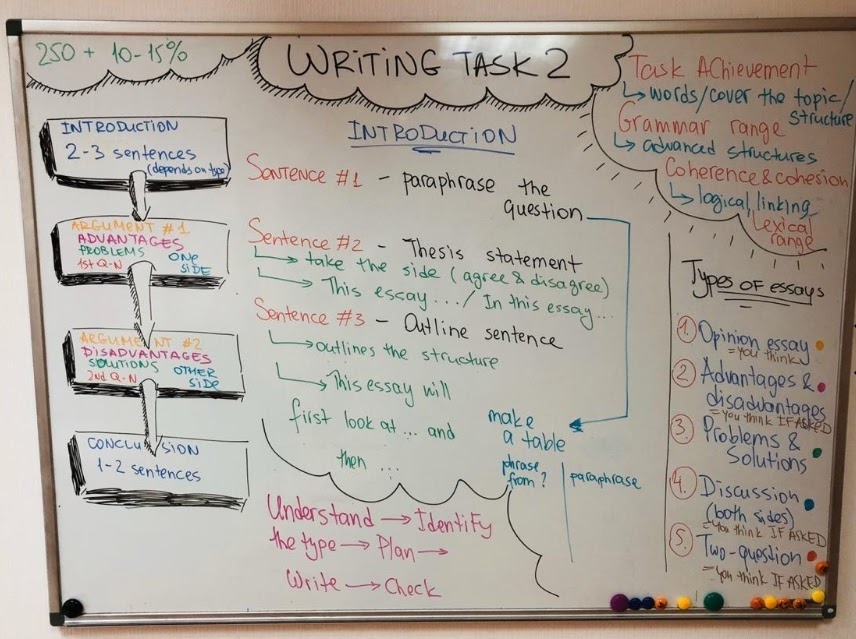 250 + 10-15%
WRITING TASK 2
Task Achievement
words/cover the topic/
structure
Grammar range
advanced structures
Coherence & cohesion
logical, linking
Lexical
range
INTRODUCTION
2-3 sentences
(depends on type)
ARGUMENT #1
ADVANTAGES
PROBLEMS ONE
1st Q-N SIDE
ARGUMENT #2
DISADVANTAGES
SOLUTIONS OTHER
2nd Q-N SIDE
CONCLUSION
1-2 sentences
INTRODUCTION
Sentence #1 - paraphrase the
question
Sentence #2 - Thesis statement
take the side (agree & disagree)
This essay.../ In this essay...
Sentence #3 - Outline sentence
outlines the structure
This essay will
first look at ... and
then ...
make
a table
phrase
from? paraphrase
Understand → Identify
the type → Plan →
Write → Check
Types of essays
1. Opinion essay
= you think
2. Advantages &
disadvantages
= you think IF ASKED
3. Problems &
Solutions
4. Discussion
(both sides)
= you think IF ASKED
5. Two-question
= you think IF ASKED